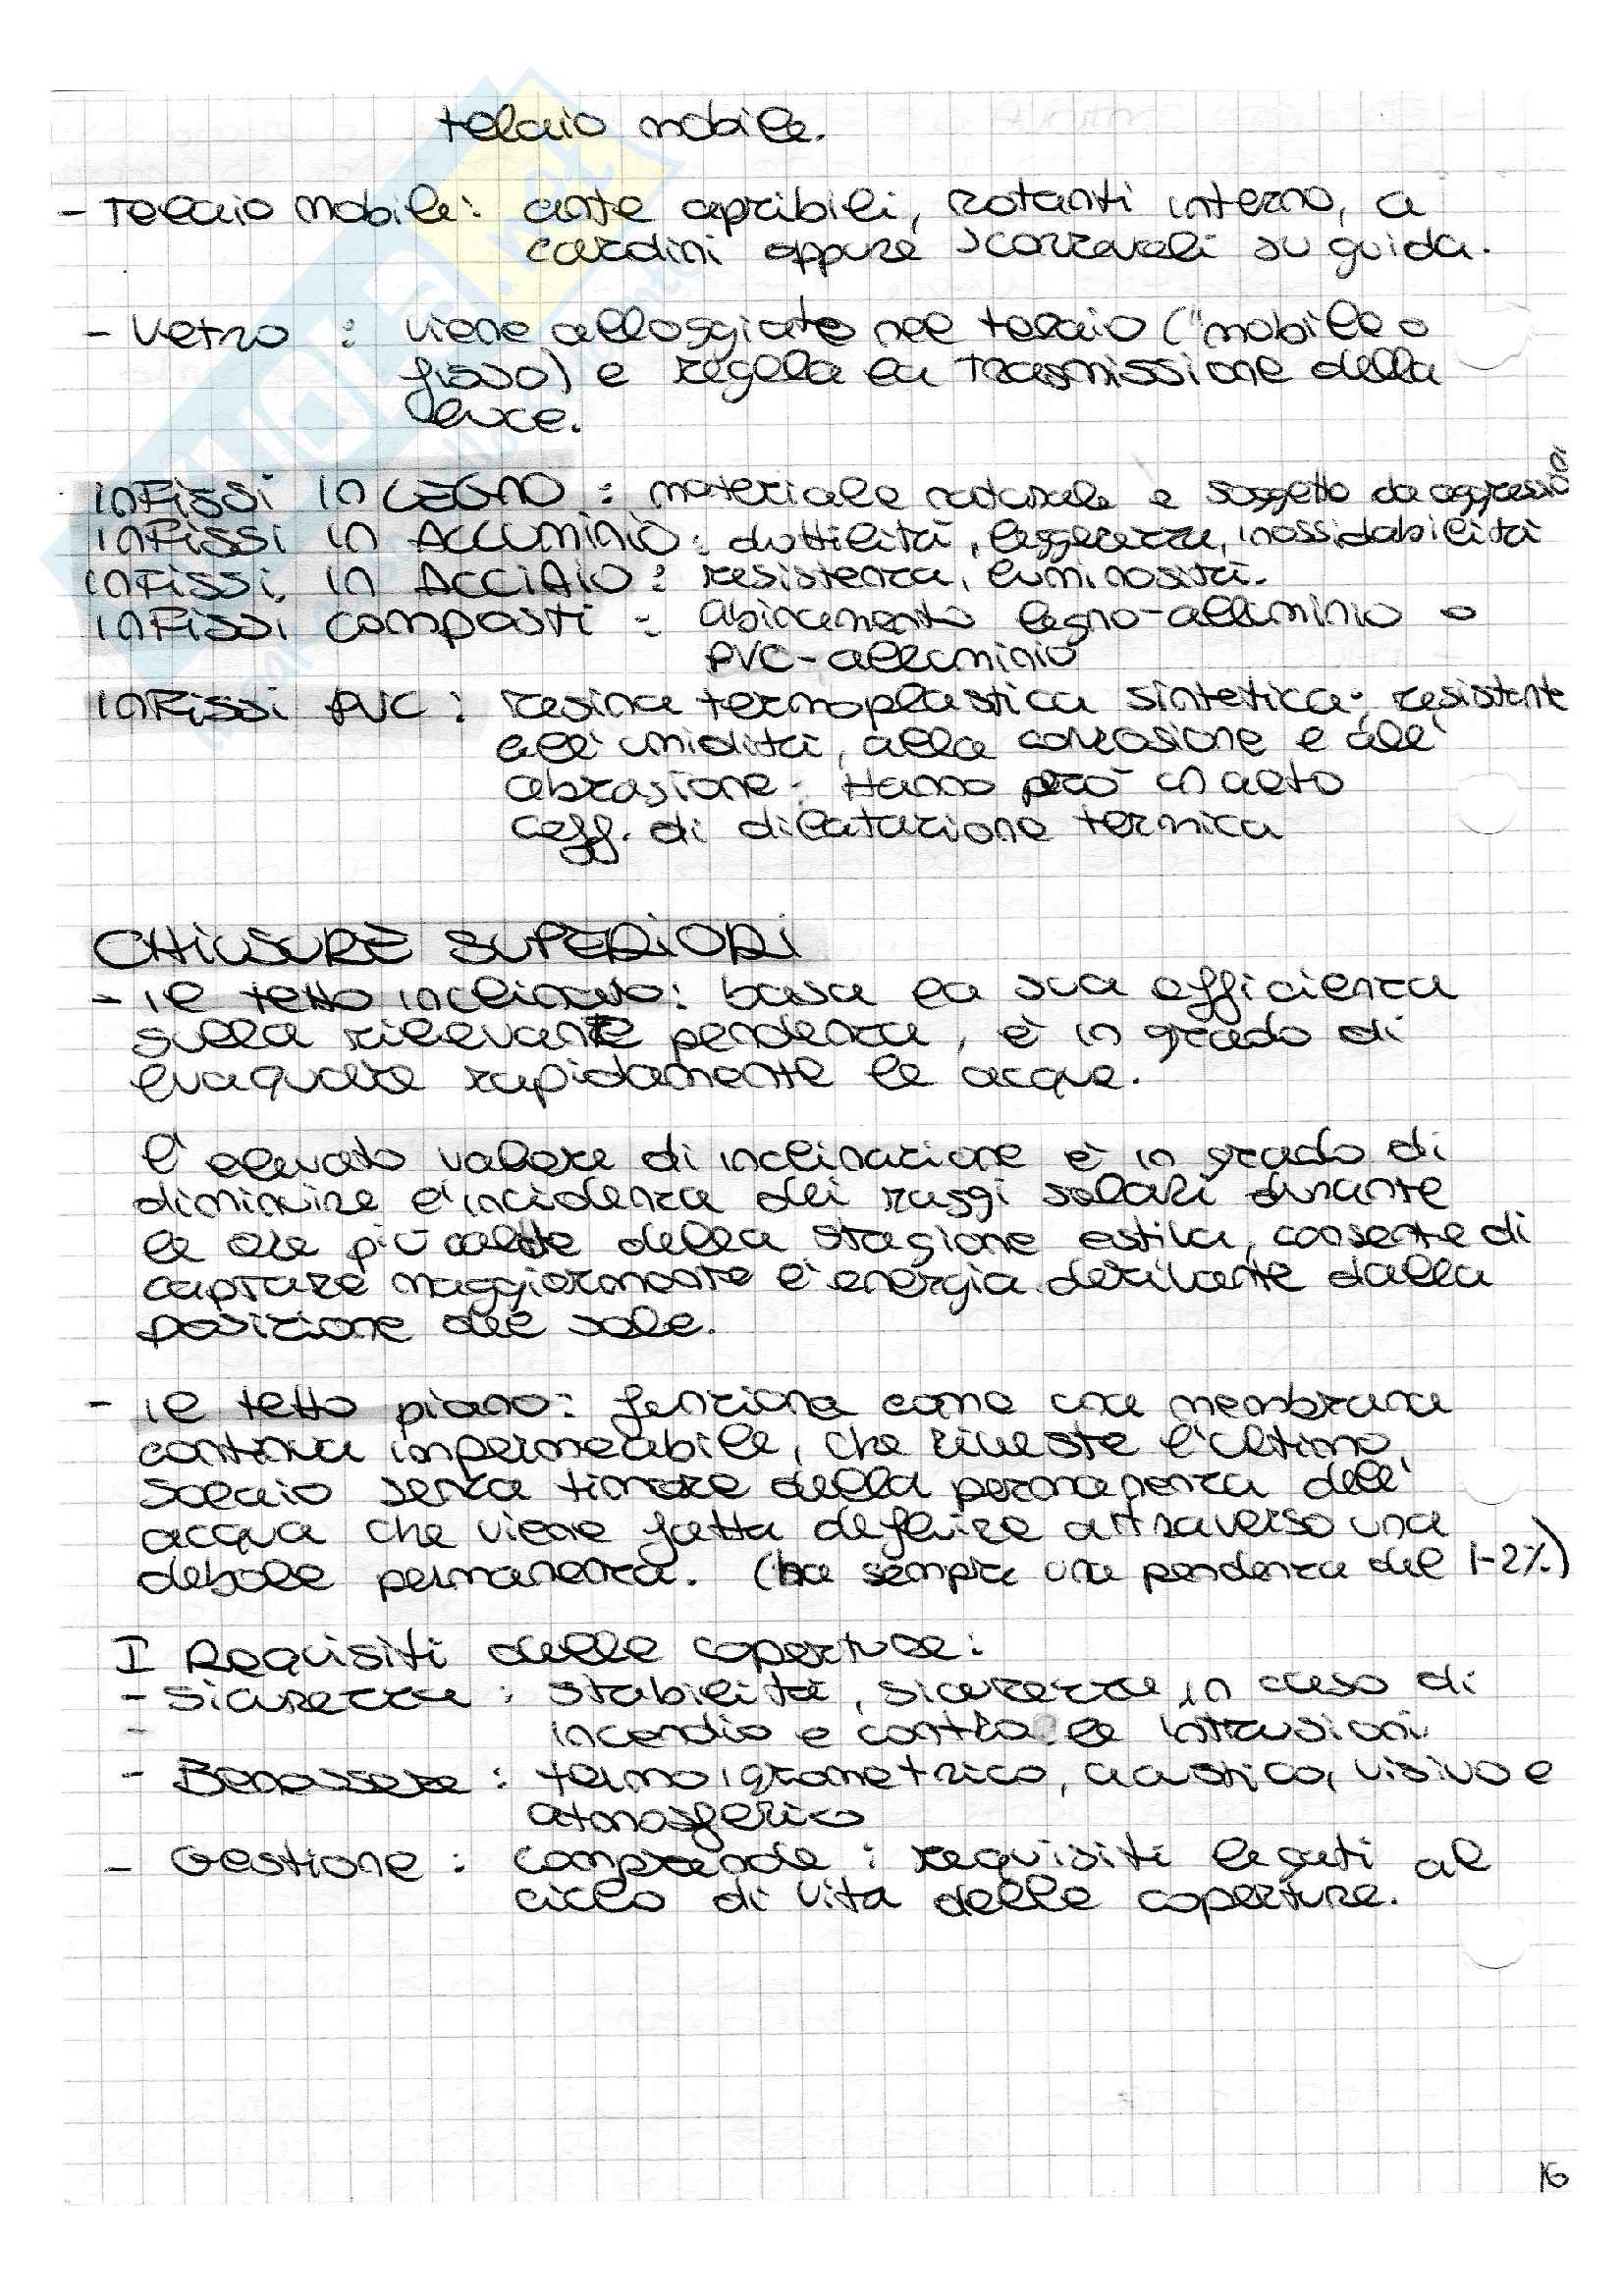 telaio mobile.
- Telaio mobile: ante apribili, rotanti interno, a
cardini oppure scorrevoli su guida.
- Vetro : viene alloggiato nel telaio ("mobile o
fisso) e regola la trasmissione della
luce.
INFISSI IN LEGNO : materiale naturale e soggetto da aggressioni
INFISSI IN ALLUMINIO : duttilità, leggerezza, inossidabilità
INFISSI IN ACCIAIO : resistenza, luminosità.
INFISSI composti : abinamento legno-alluminio o
PVC-alluminio
INFISSI PVC : resina termoplastica sintetica; resistente
all'umidità, alla corrosione e all'
abrasione. Hanno però un alto
coeff. di dilatazione termica
CHIUSURE SUPERIORI
- Il tetto inclinato: basa la sua efficienza
sulla rilevante pendenza, è in grado di
evaquare rapidamente le acque.
L'elevato valore di inclinazione è in grado di
diminuire l'incidenza dei raggi solari durante
le ore più calde della stagione estiva, consente di
captare maggiormente l'energia derivante dalla
posizione del sole.
- Il tetto piano: funziona come una membrana
continua impermeabile, che riveste l'ultimo
solaio senza timore della permanenza dell'
acqua che viene fatta defluire attraverso una
debole permanenza. (ha sempre una pendenza del 1-2%)
I Requisiti delle coperture:
- Sicurezza : stabilità, sicurezza in caso di
- incendio e contro le intrusioni
- Benessere : termoigrometrico, acustico, visivo e
atmosferico
- Gestione : comprende : requisiti legati al
ciclo di vita delle coperture.
16